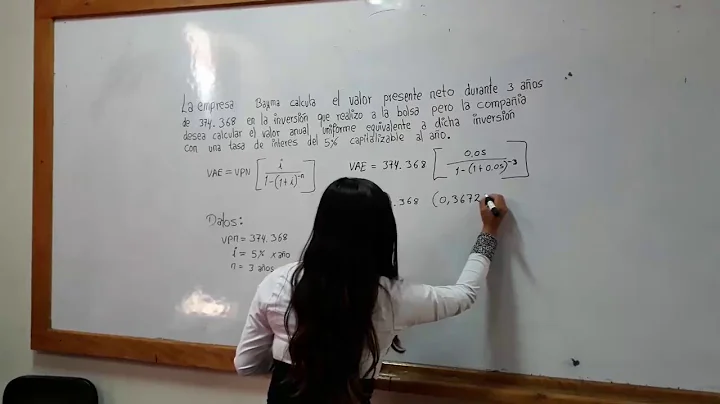 La empresa Bayma calcula el valor presente neto durante 3 años
de 374.368 en la inversión que realizo a la bolsa pero la compañia
desea calcular el valor anual uniforme equivalente a dicha inversión
con una tasa de interes del 5% capitalizable al año.
VAE = VPN [ i / 1-(1+i)^-n ] VAE = 374.368 [ 0,05 / 1-(1+0.05)^-3 ]
.368 (0,3672
Datos:
VPN = 374.368
i = 5% x año
n = 3 años